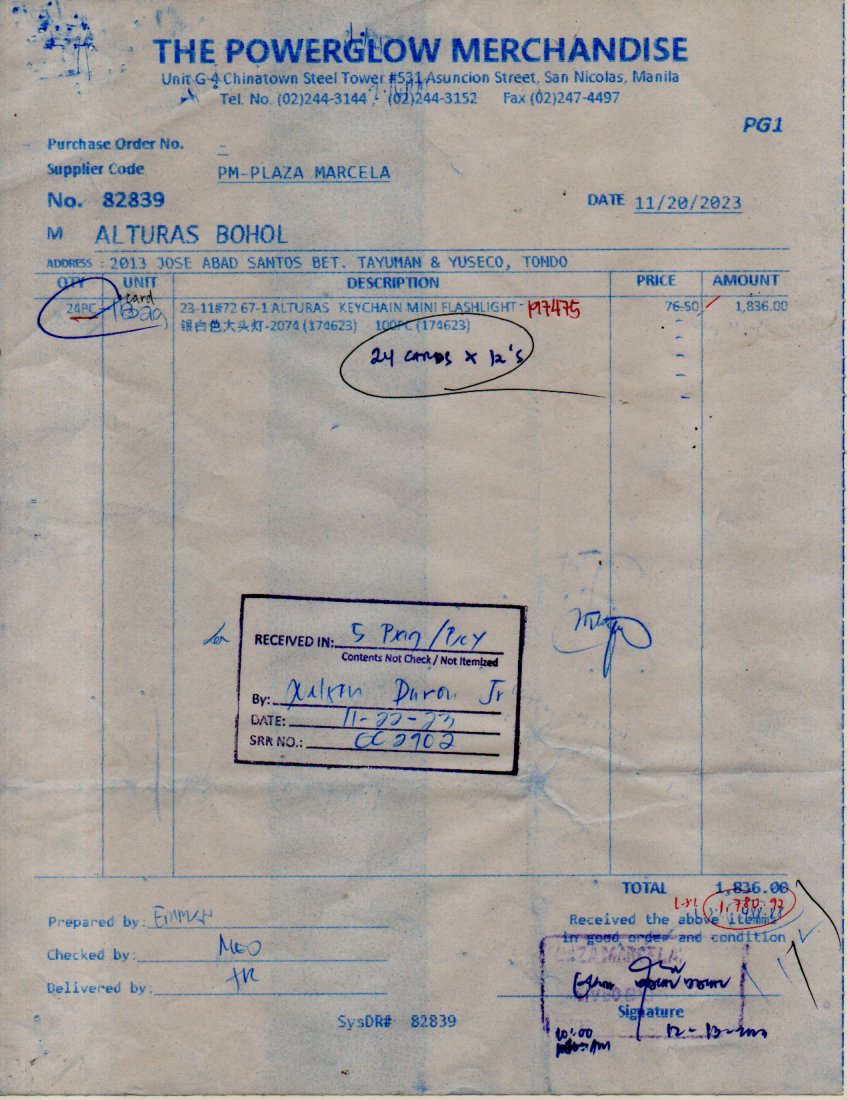 THE POWERGLOW MERCHANDISE
Unit G-4 Chinatown Steel Tower #531 Asuncion Street, San Nicolas, Manila
Tel. No. (02)244-3144 - (02)244-3152 Fax (02)247-4497
PG1
Purchase Order No. -
Supplier Code PM-PLAZA MARCELA
No. 82839 DATE 11/20/2023
M ALTURAS BOHOL
ADDRESS : 2013 JOSE ABAD SANTOS BET. TAYUMAN & YUSECO, TONDO
QTY UNIT DESCRIPTION PRICE AMOUNT
card
24PC 23-11#72 67-1 ALTURAS KEYCHAIN MINI FLASHLIGHT - 197475 76.50 1,836.00
银白色大头灯-2074 (174623) 100PC (174623)
24 CARDS x 12's
RECEIVED IN: 5
Contents Not Check / Not Itemized
By: Duron Jr
DATE: 11-22-23
SRR NO.: CC2902
TOTAL 1,836.00
1,780.92
Prepared by: EMMAN Received the above itemms
in good order and condition
Checked by: NEO
Delivered by: JR
PLAZA MARCELA
Signature
SysDR# 82839
10:00